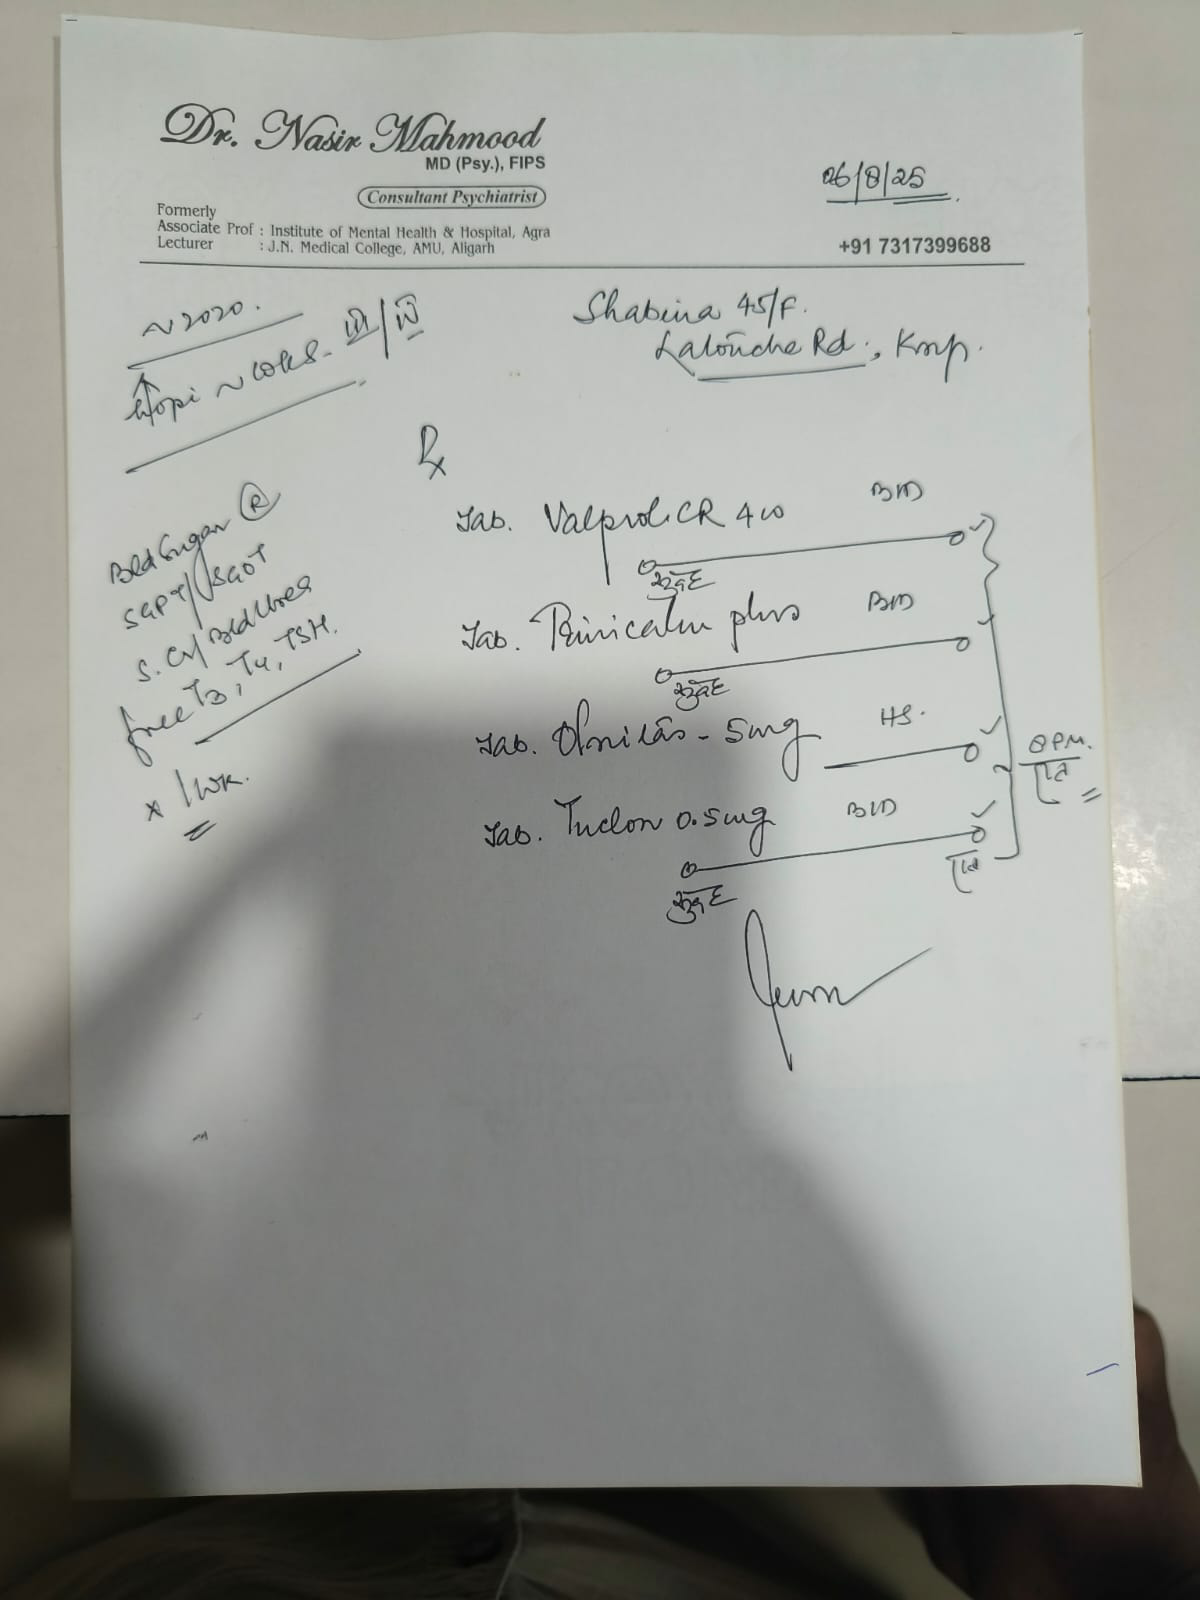 Dr. Nasir Mahmood
MD (Psy.), FIPS
Consultant Psychiatrist
Formerly
Associate Prof : Institute of Mental Health & Hospital, Agra
Lecturer : J.N. Medical College, AMU, Aligarh
06/8/25
+91 7317399688
~ 2020.
Shabina 45/F.
Latouche Rd., Knp.
Rx
Tab. Valprol CR 400 BID
सुबह
Tab. plus BID
सुबह
Tab. - 5mg HS.
8PM.
रात
Tab. 0.5mg BID
सुबह
रात
Bld Sugar R
SGPT/SGOT
S. Cr/Bld Urea
free T3, T4, TSH.
x 1 wk.